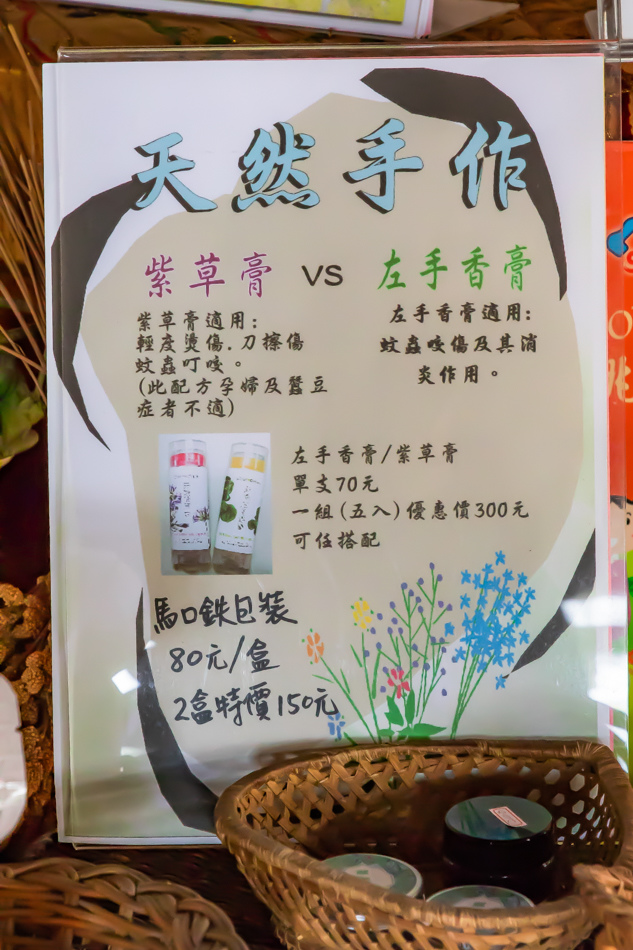 天然手作
紫草膏 VS 左手香膏
紫草膏適用:
輕度燙傷.刀擦傷
蚊蟲叮咬。
(此配方孕婦及蠶豆
症者不適)
左手香膏適用:
蚊蟲咬傷及其消
炎作用。
左手香膏/紫草膏
單支70元
一組(五入)優惠價300元
可任搭配
馬口鉄包裝
80元/盒
2盒特價150元